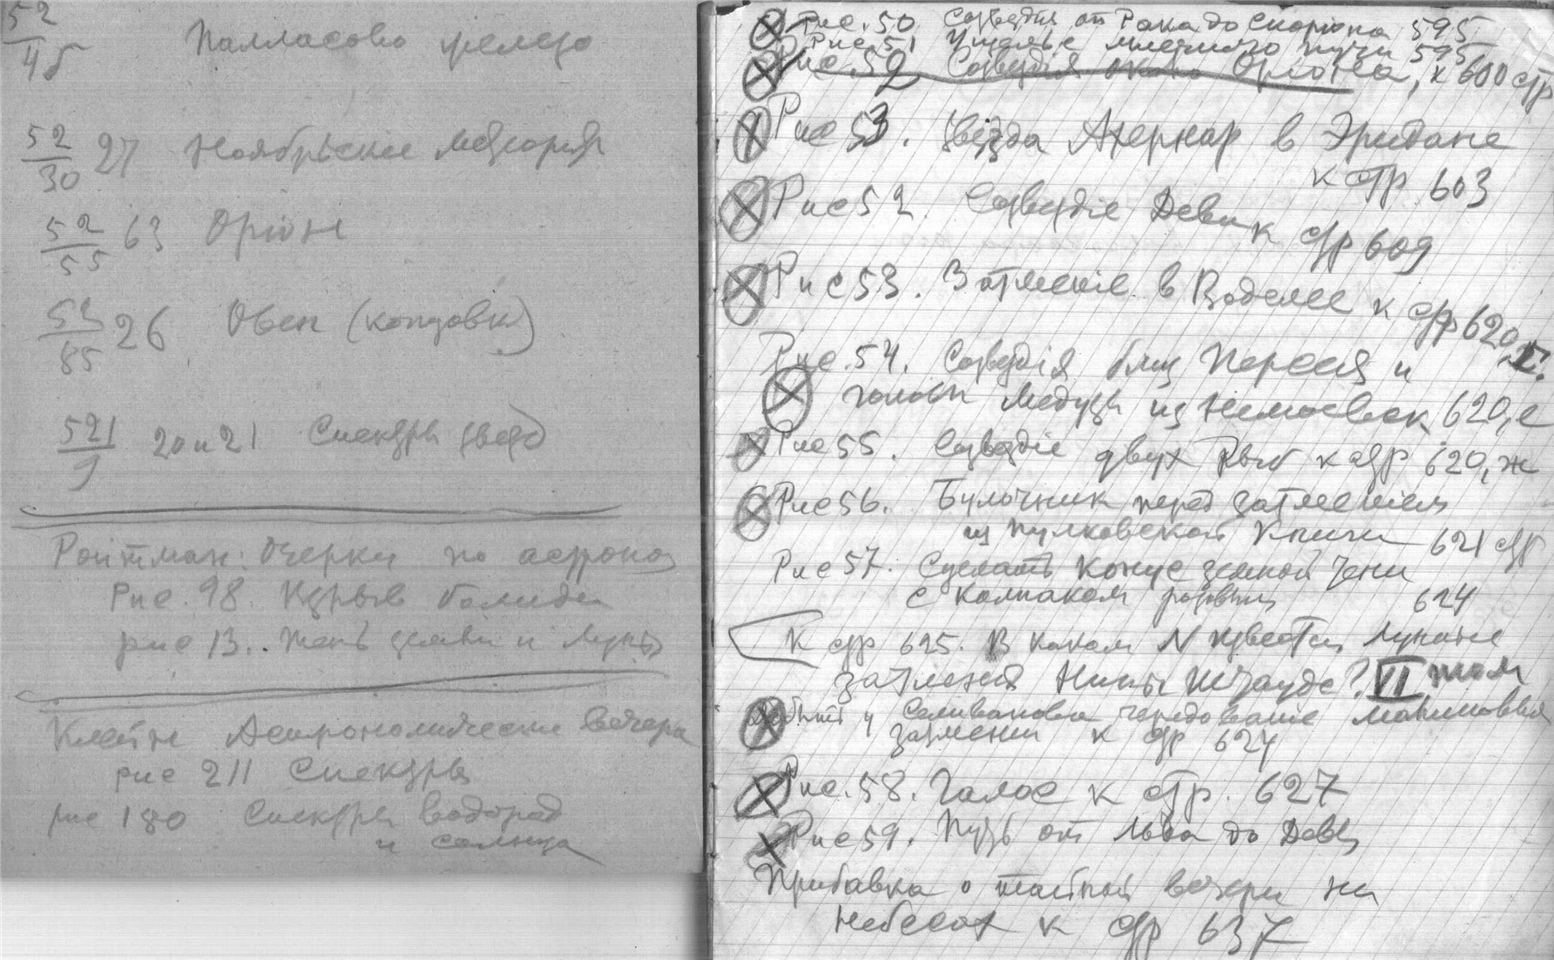 52
45 Палласово железо
52
30 27 Ноябрьские метеоры
52
55 63 Оріон
52
85 26 Овен (концовки)
521
9 20 и 21 Спектры звезд
Ройтман: Очерки по астроно
Рис. 98. Взрыв болида
рис 13.. Тень земли и Луны
Клейн Астрономические вечера
рис 211 Спектры
рис 180 Спектры водород
и солнца
Рис. 50. Созвездия от Рака до Скорпіона 595
Рис. 51 Ущелье млечного пути 595
Рис. 52 Созвездія около Оріона, к 600 стр
Рис 53. Звезда Ахернар в Эридане
к стр. 603
Рис 52. Созвездіе Девы к стр 609
Рис 53. Затменіе в Водолее к стр 620,
Рис. 54. Созвездія близ Персея и
головы Медузы из 620, е
Рис 55. Созвездіе двух Рыб к стр 620, ж
Рис 56. Булочник перед затмением
из Пулковской Книги 621 стр
Рис 57. Сделать конус земной тени
с колпаком 624
К стр 625. В каком № известія
затмения Нины Штауде? VI том
Селиванова чередование
затмении к стр 624
Рис. 58. Галос к стр. 627
Рис 59. Путь от Льва до Девы
Прибавка о тайной вечери на
небесах к стр 637